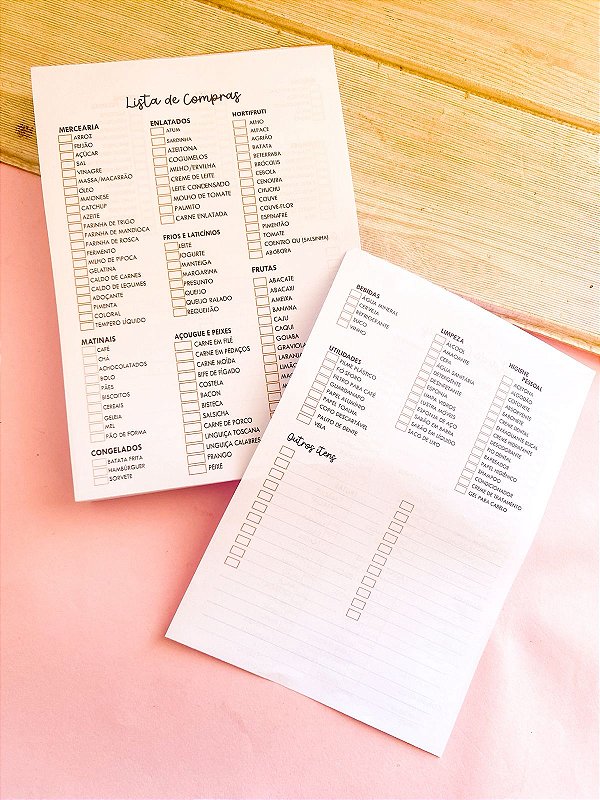 Lista de Compras
MERCEARIA
ARROZ
FEIJÃO
AÇÚCAR
SAL
VINAGRE
MASSA/MACARRÃO
ÓLEO
MAIONESE
CATCHUP
AZEITE
FARINHA DE TRIGO
FARINHA DE MANDIOCA
FARINHA DE ROSCA
FERMENTO
MILHO DE PIPOCA
GELATINA
CALDO DE CARNES
CALDO DE LEGUMES
ADOÇANTE
PIMENTA
COLORAL
TEMPERO LÍQUIDO
MATINAIS
CAFÉ
CHÁ
ACHOCOLATADOS
BOLO
PÃES
BISCOITOS
CEREAIS
GELEIA
MEL
PÃO DE FORMA
CONGELADOS
BATATA FRITA
HAMBÚRGUER
SORVETE
ENLATADOS
ATUM
SARDINHA
AZEITONA
COGUMELOS
MILHO/ERVILHA
CREME DE LEITE
LEITE CONDENSADO
MOLHO DE TOMATE
PALMITO
CARNE ENLATADA
FRIOS E LATICÍNIOS
LEITE
IOGURTE
MANTEIGA
MARGARINA
PRESUNTO
QUEIJO
QUEIJO RALADO
REQUEIJÃO
AÇOUGUE E PEIXES
CARNE EM FILÉ
CARNE EM PEDAÇOS
CARNE MOÍDA
BIFE DE FÍGADO
COSTELA
BACON
BISTECA
SALSICHA
CARNE DE PORCO
LINGUIÇA TOSCANA
LINGUIÇA CALABRES
FRANGO
PEIXE
HORTIFRUTI
ALHO
ALFACE
AGRIÃO
BATATA
BETERRABA
BRÓCOLIS
CEBOLA
CENOURA
CHUCHU
COUVE
COUVE-FLOR
ESPINAFRE
PIMENTÃO
TOMATE
COENTRO OU (SALSINHA)
ABÓBORA
FRUTAS
ABACATE
ABACAXI
AMEIXA
BANANA
CAJU
CAQUI
GOIABA
GRAVIOLA
LARANJA
LIMÃO
BEBIDAS
ÁGUA MINERAL
CERVEJA
REFRIGERANTE
SUCO
VINHO
UTILIDADES
FILME PLÁSTICO
FÓSFORO
FILTRO PARA CAFÉ
GUARDANAPO
PAPEL ALUMÍNIO
PAPEL TOALHA
COPO DESCARTÁVEL
PALITO DE DENTE
VELA
LIMPEZA
ÁLCOOL
AMACIANTE
CERA
ÁGUA SANITÁRIA
DETERGENTE
DESINFETANTE
ESPONJA
LIMPA VIDROS
LUSTRA MÓVEIS
ESPONJA DE AÇO
SABÃO EM BARRA
SABÃO EM LÍQUIDO
SACO DE LIXO
HIGIENE
PESSOAL
ACETONA
ALGODÃO
COTONETE
ABSORVENTE
SABONETE
CREME DENTAL
ENXAGUANTE BUCAL
CREME HIDRATANTE
DESODORANTE
FIO DENTAL
BARBEADOR
PAPEL HIGIÊNICO
SHAMPOO
CONDICIONADOR
CREME DE TRATAMENTO
GEL PARA CABELO
Outros itens